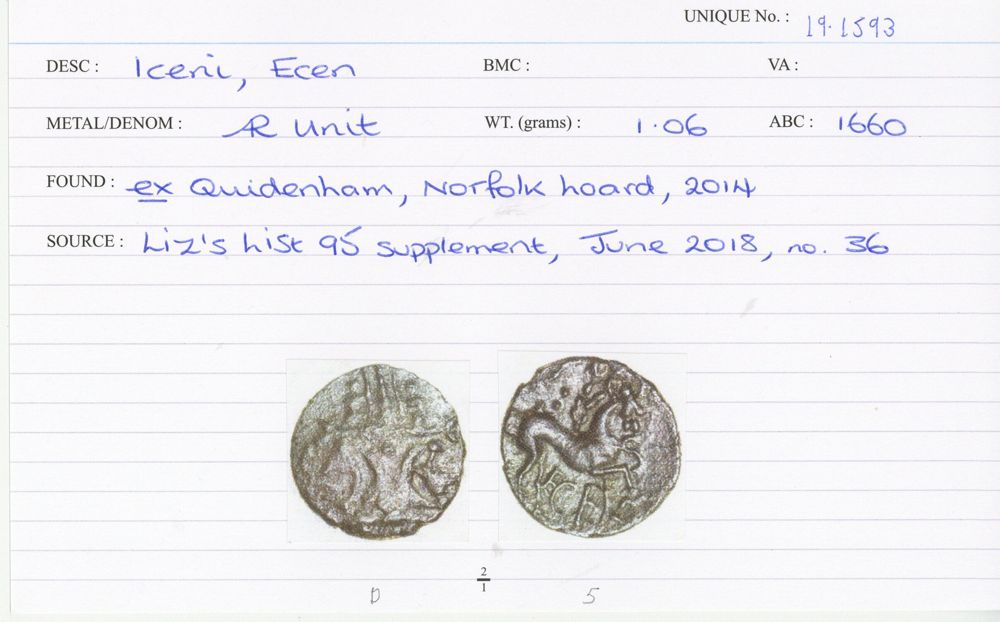 UNIQUE No. : 19.1593
DESC : Iceni, Ecen BMC : VA :
METAL/DENOM : AR Unit WT. (grams) : 1.06 ABC : 1660
FOUND : ex Quidenham, Norfolk hoard, 2014
SOURCE : Liz's list 95 supplement, June 2018, no. 36
2
1
D 5